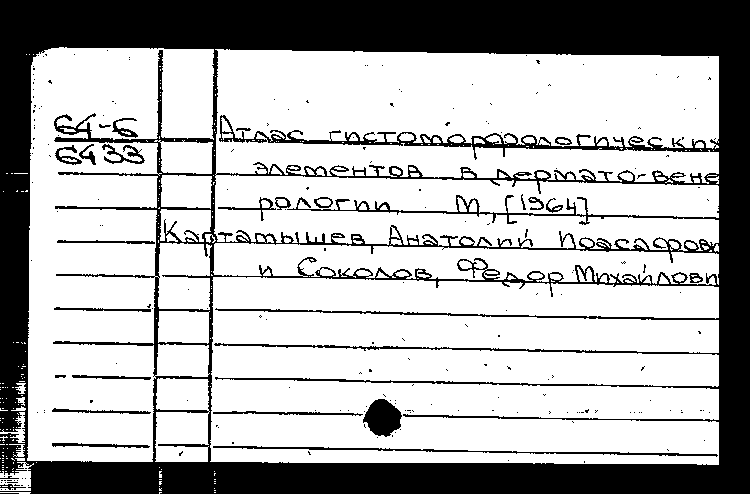 64-6 Атлас гистоморфологических
6433 элементов в дермато-вене
рологии М., [1964].
Картамышев, Анатолий Иоасафови
и Соколов, Федор Михайлови